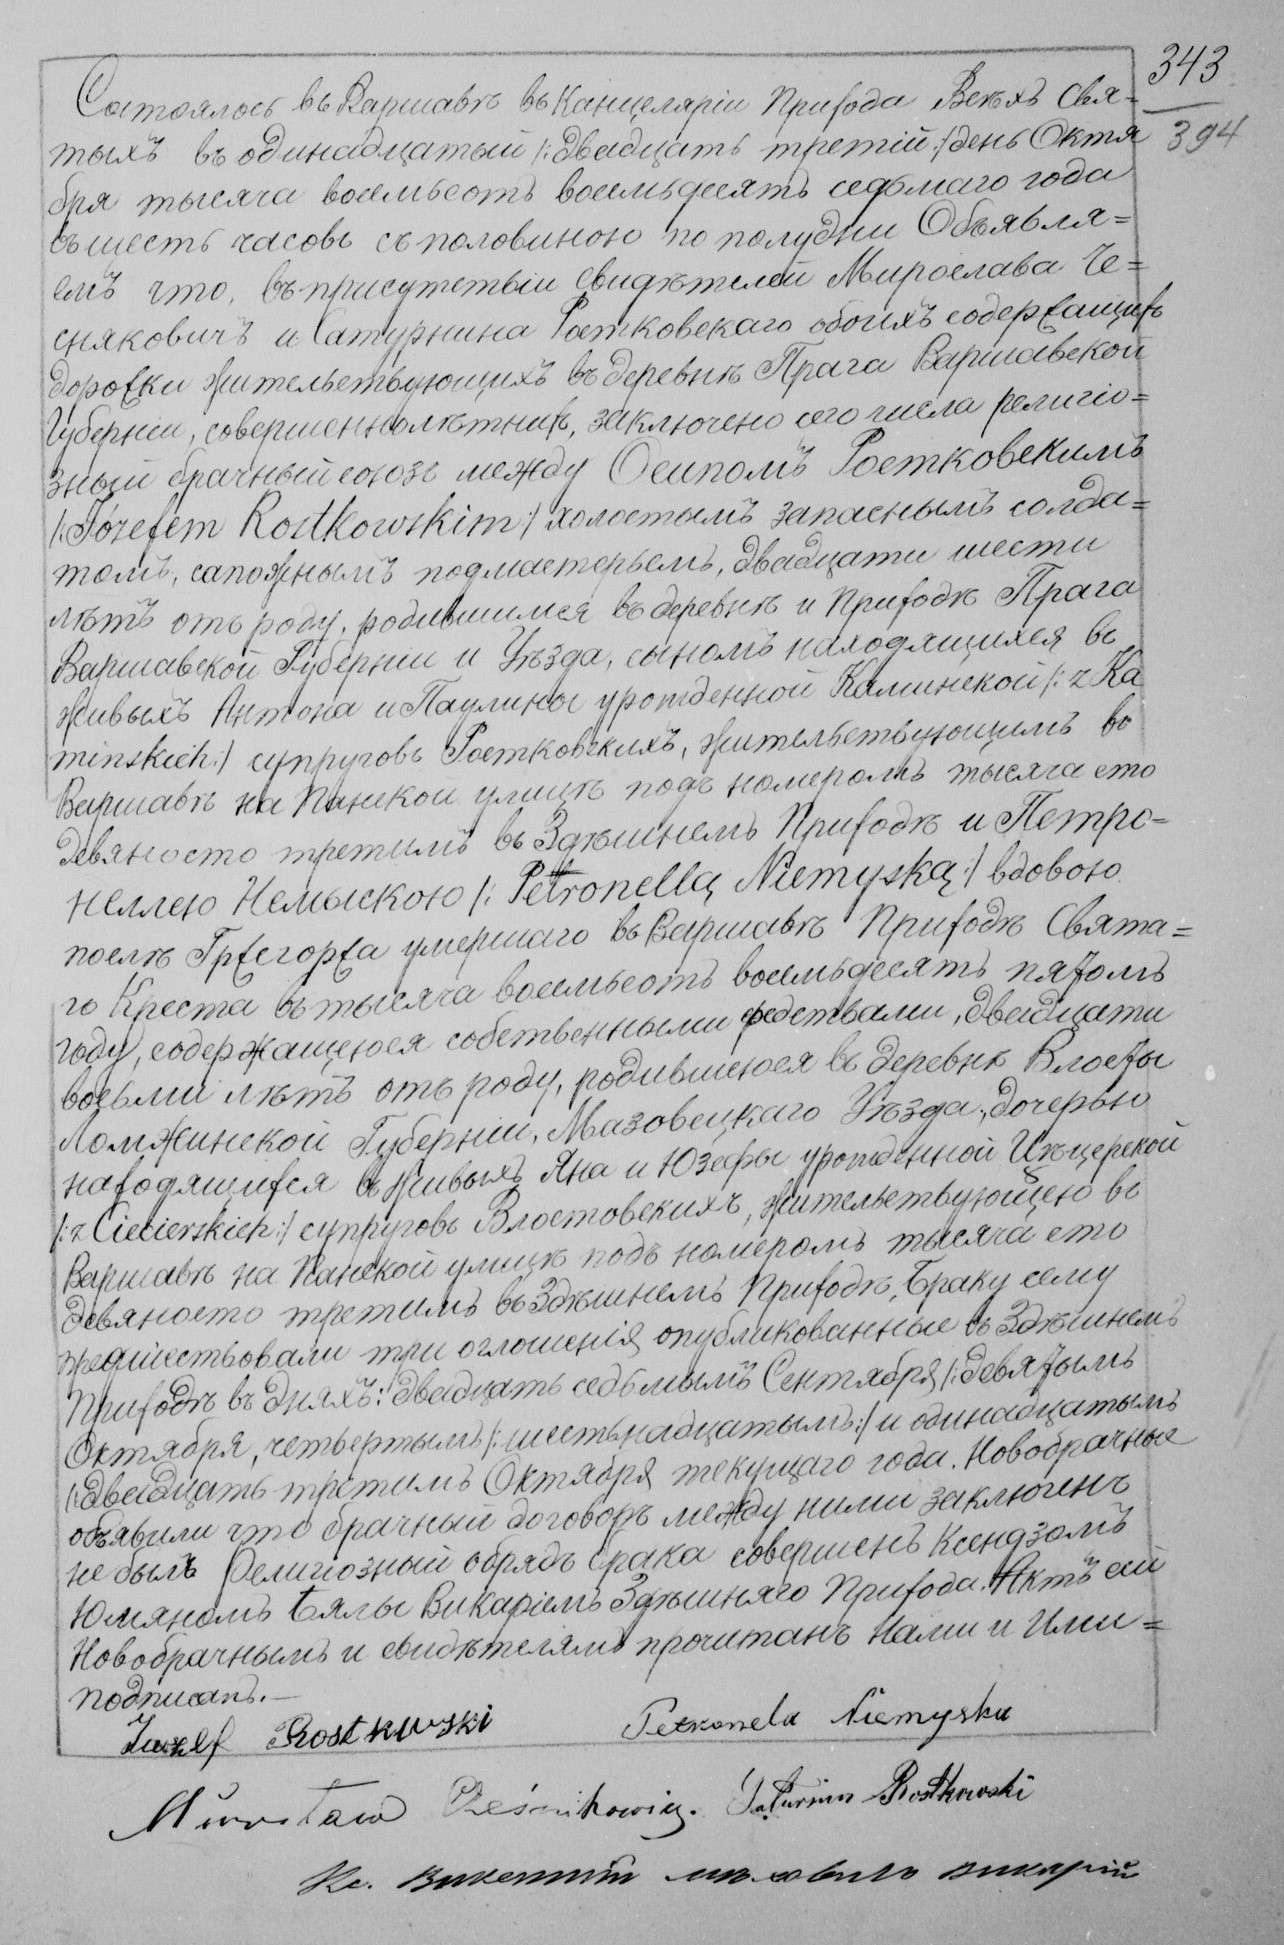 343
394
Состоялось въ Варшавѣ въ Канцеляріи Прихода Всѣхъ Свя=
тыхъ въ одинадцатый /:двадцать третій:/ день Октя
бря тысяча восемьсотъ восемьдесятъ седьмаго года
въ шесть часовъ съ половиною по полудни Объявля=
емъ что, въ присутствіи свидѣтелей Мирослава Че=
сняковичъ и Сатурнина Ростковскаго обоихъ содержащихъ
дорожки жительствующихъ въ деревнѣ Прага Варшавской
Губерніи, совершеннолѣтнихъ, заключено сего числа религіо=
зный брачный союзъ между Осипомъ Ростковскимъ
/:Józefem Rostkowskim:/ холостымъ запаснымъ солда=
томъ, сапожнымъ подмастерьемъ, двадцати шести
лѣтъ отъ роду, родившимся въ деревнѣ и Приходѣ Прага
Варшавской Губерніи и Уѣзда, сыномъ находящихся въ
живыхъ Антона и Паулины урожденной Каминской /:z Ka
minskich:/ супруговъ Ростковскихъ, жительствующимъ во
Варшавѣ на Панской улицѣ подъ номеромъ тысяча сто
девяносто третимъ въ Здѣшнемъ Приходѣ и Петро=
неллею Немыскою /:Petronellą Niemyską:/ вдовою
послѣ Гржегоржа умершаго въ Варшавѣ Приходѣ Свята=
го Креста въ тысяча восемьсотъ восемьдесятъ пятомъ
году, содержащеюся собственными средствами, двадцати
восьми лѣтъ отъ роду, родившеюся въ деревнѣ Влосты
Ломжинской Губерніи, Мазовецкаго Уѣзда, дочерью
находящихся въ живыхъ Яна и Юзефы урожденной Цѣцерской
/:z Ciecierskich:/ супруговъ Влостовскихъ, жительствующею въ
Варшавѣ на Панской улицѣ подъ номеромъ тысяча сто
девяносто третимъ въ Здѣшнемъ Приходѣ, Браку сему
предшествовали три оглошенія опубликованные въ Здѣшнемъ
Приходѣ въ дняхъ: двадцать седьмымъ Сентября /:девятымъ
Октября, четвертымъ /:шестьнадцатымъ:/ и одинадцатымъ
/:двадцать третимъ Октября текущаго года. Новобрачные
объявили что брачный договоръ между ними заключенъ
не былъ Религіозный обрядъ брака совершенъ Ксендзомъ
Юліяномъ Бялы Викаріемъ Здѣшняго Прихода. Актъ сей
Новобрачнымъ и свидѣтелямъ прочитанъ Нами и Ими=
подписанъ.—
Juzef Rostkuwski Petronela Niemyska
Mirosław Cześnikowicz. Saturnin Rostkowski
Кс. Викентій викарій